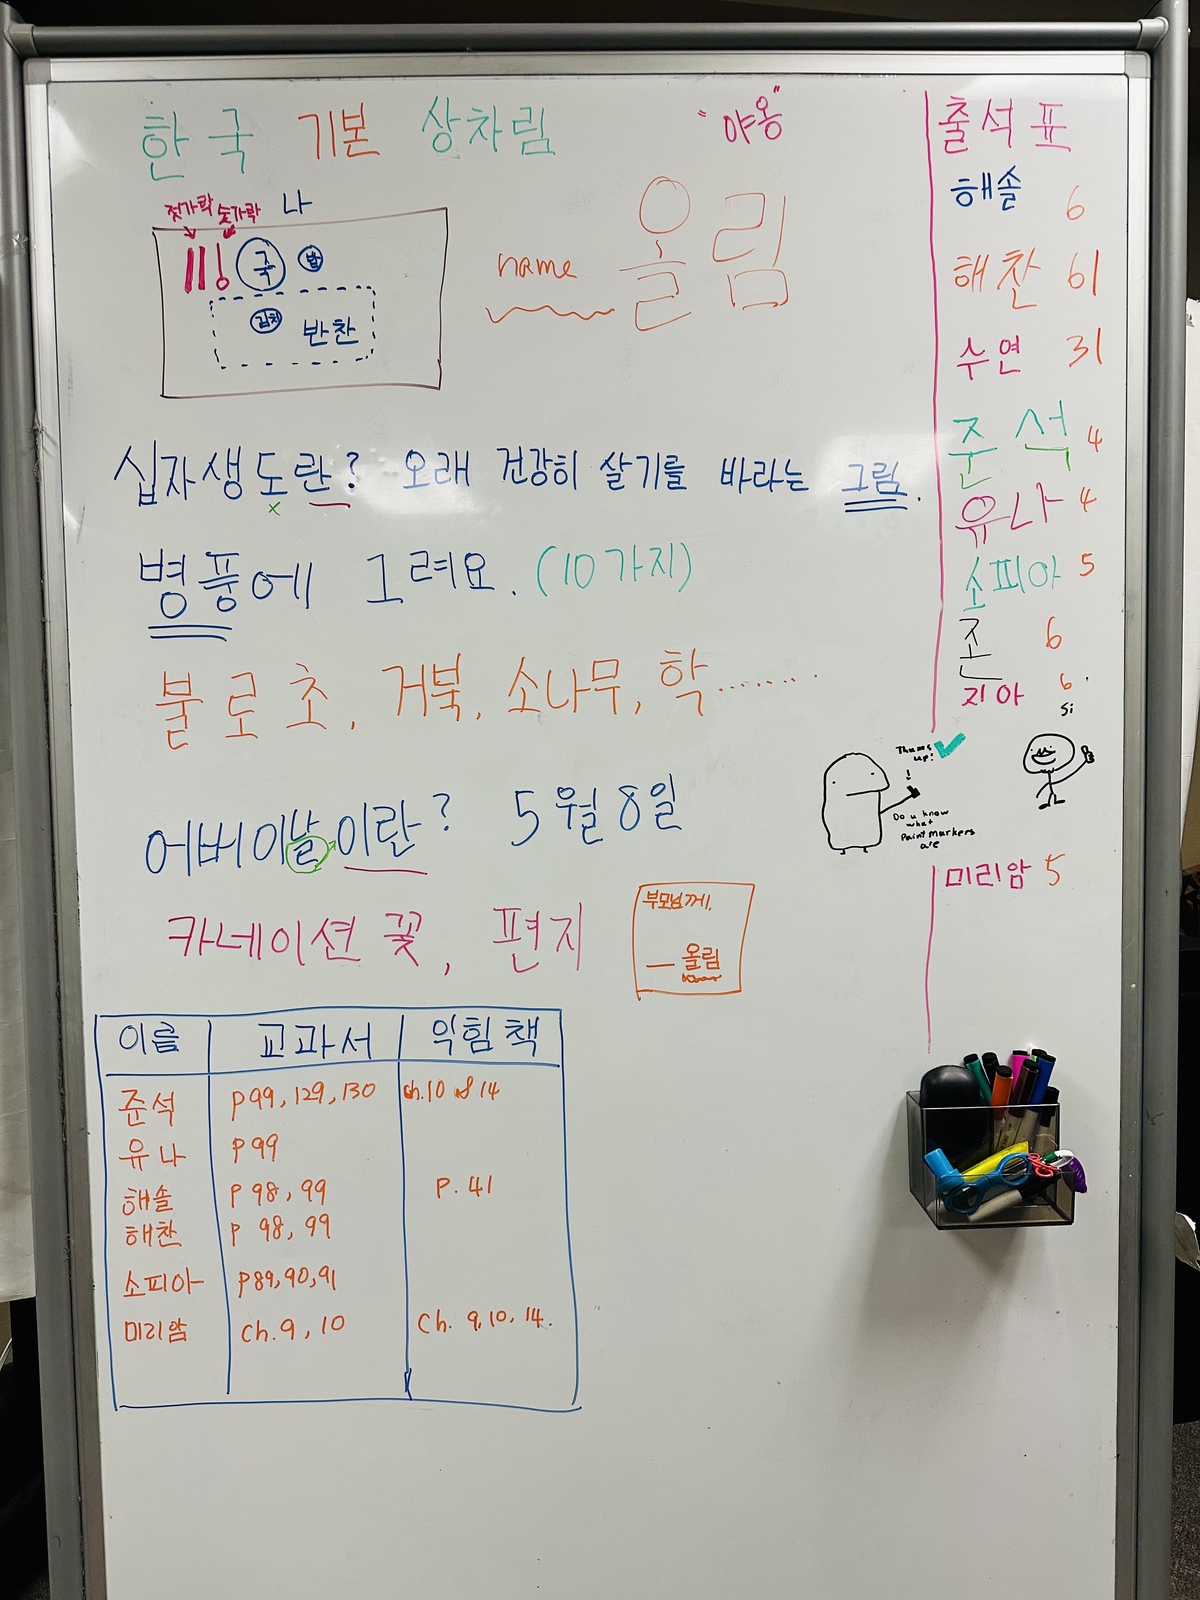 한국 기본 상차림
"야옹"
젓가락 숟가락 나
국 밥
김치 반찬
name 올림
십자생도란? 오래 건강히 살기를 바라는 그림.
x
병풍에 그려요. (10가지)
불로초, 거북, 소나무, 학.......
어버이날이란? 5월 8일
카네이션 꽃, 편지
부모님께,
— 올림
이름 교과서 익힘책
준석 p99, 129, 130 ch.10 & 14
유나 p99
해솔 p 98, 99 p. 41
해찬 p 98, 99
소피아 p89, 90, 91
미리암 ch. 9, 10 ch. 9, 10, 14.
출석표
해솔 6
해찬 61
수연 31
준석 4
유나 4
소피아 5
존 6
지아 6
Si
Thums up!
!
Do u know
what
Paint markers
are
미리암 5